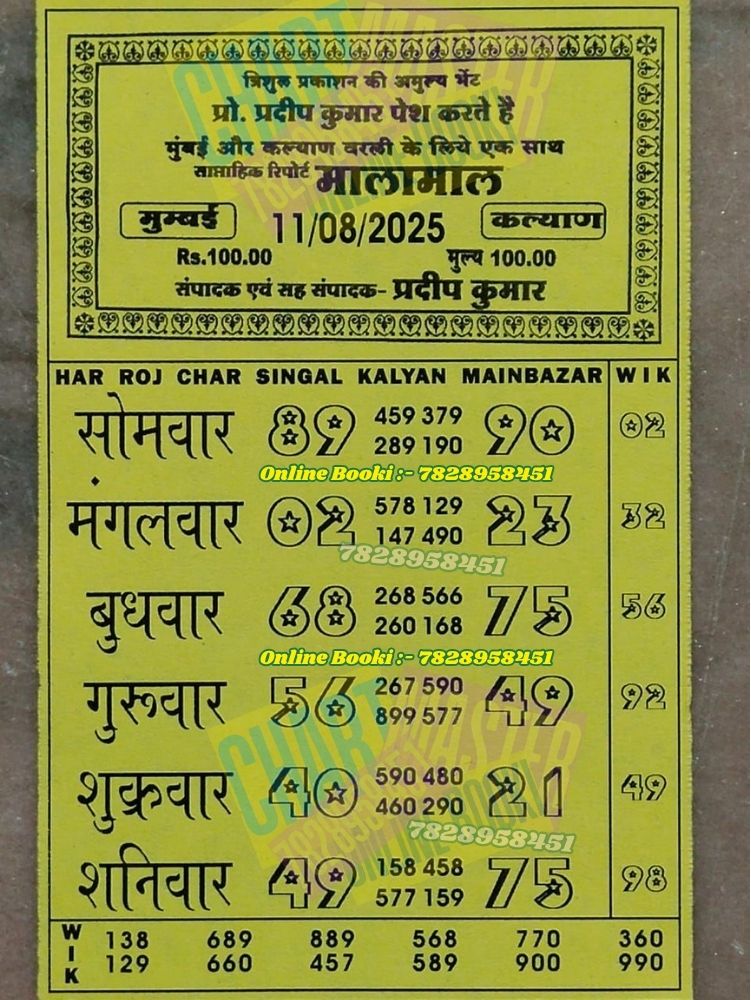 त्रिशुल प्रकाशन की अमुल्य भेंट
प्रो. प्रदीप कुमार पेश करते है
मुंबई और कल्याण वरली के लिये एक साथ
साप्ताहिक रिपोर्ट मालामाल
मुम्बई 11/08/2025 कल्याण
Rs.100.00 मुल्य 100.00
संपादक एवं सह संपादक- प्रदीप कुमार
HAR ROJ CHAR SINGAL KALYAN MAINBAZAR WIK
सोमवार 89 459 379 90 02
289 190
Online Booki :- 7828958451
मंगलवार 02 578 129 23 32
147 490
7828958451
बुधवार 68 268 566 75 56
260 168
Online Booki :- 7828958451
गुरूवार 56 267 590 49 92
899 577
CHART MASTER
शुक्रवार 40 590 480 21 49
460 290
7828958451
ONLINE BOOKI
शनिवार 49 158 458 75 98
577 159
WIK 138 689 889 568 770 360
129 660 457 589 900 990